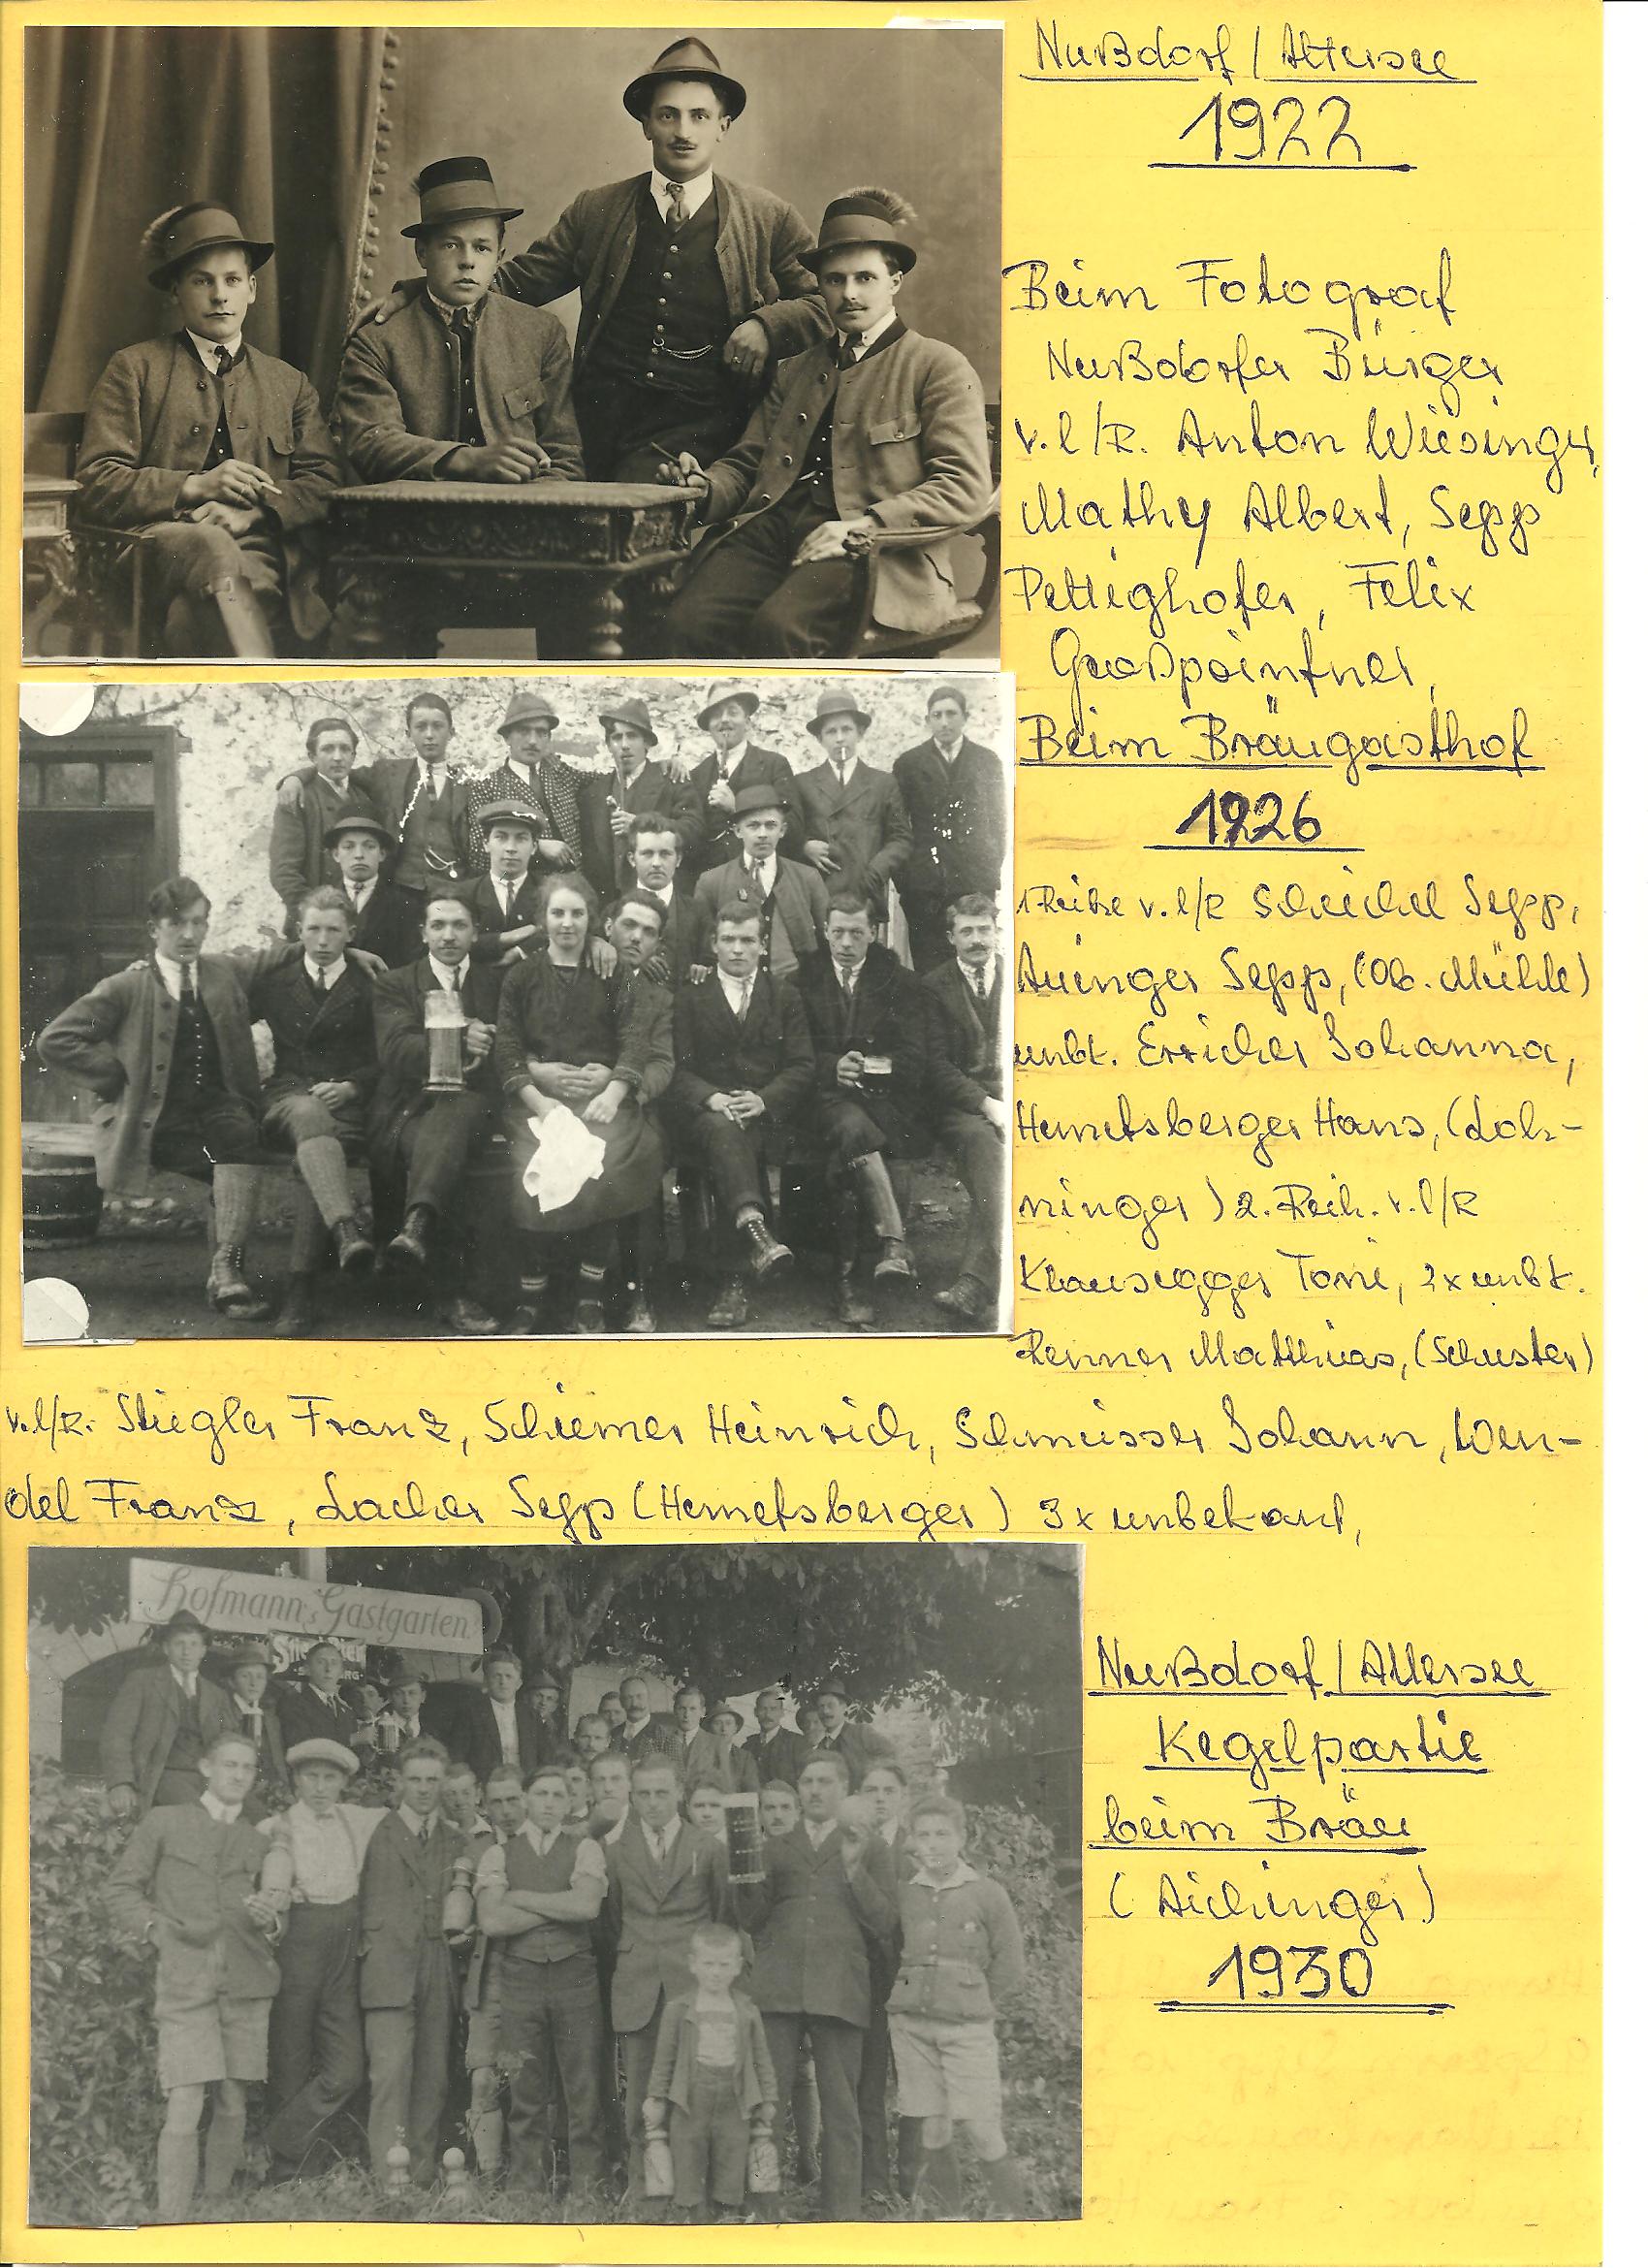 Nußdorf / Attersee
1922
Beim Fotograf
Nußdorfer Bürger
v. l /R. Anton Wiesinger,
Mathy Albert, Sepp
Pettighofer, Felix
Großpointner,
Beim Bräugasthof
1926
1 Reihe v. l/R Scheichel Sepp,
Auinger Sepp, (Ob. Mühle)
unbt. Erricher Johanna,
Hemetsberger Hans, (Loh-
ninger) 2. Reih. v. l/R
Klausegger Toni, 2x unbt.
Renner Matthias, (Schuster)
v. l/R. Stiegler Franz, Schiemer Heinrich, Schmisser Johann, Wen-
del Franz, Lacher Sepp (Hemetsberger) 3x unbekant,
Hofmann's Gastgarten
Stiegl Bier
Nußdorf / Attersee
Kegelpartie
beim Bräu
(Aichinger)
1930